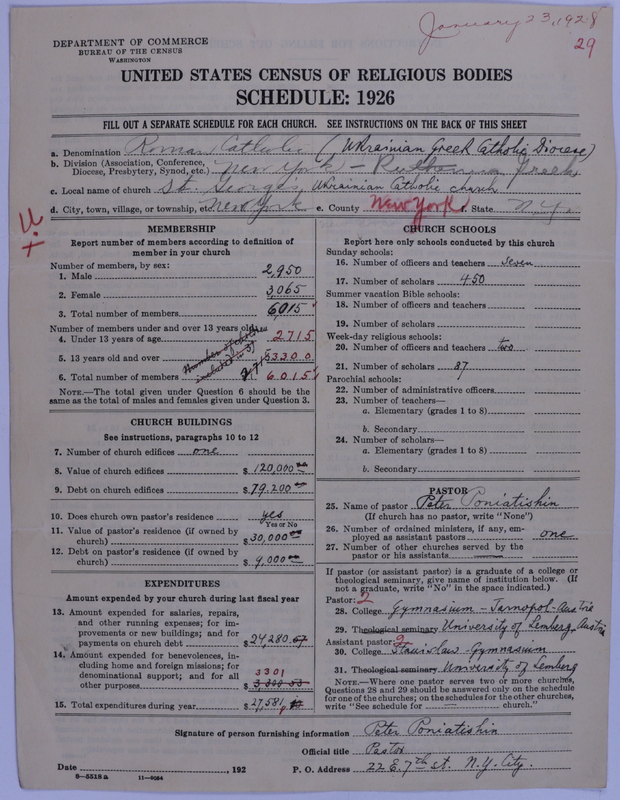 January 23, 1928
29
DEPARTMENT OF COMMERCE
BUREAU OF THE CENSUS
WASHINGTON
UNITED STATES CENSUS OF RELIGIOUS BODIES
SCHEDULE: 1926
FILL OUT A SEPARATE SCHEDULE FOR EACH CHURCH. SEE INSTRUCTIONS ON THE BACK OF THIS SHEET
a. Denomination Roman Catholic (Ukrainian Greek Catholic Diocese)
b. Division (Association, Conference, Diocese, Presbytery, Synod, etc.) New York - Ruthenian Greek
c. Local name of church St. George Ukrainian Catholic church
d. City, town, village, or township, etc. New York e. County New York f. State N.Y.
MEMBERSHIP
Report number of members according to definition of
member in your church
Number of members, by sex:
1. Male 2,950
2. Female 3,065
3. Total number of members 6,015
Number of members under and over 13 years old:
4. Under 13 years of age 2715
5. 13 years old and over 3300
6. Total number of members 6015
NOTE.—The total given under Question 6 should be the
same as the total of males and females given under Question 3.
CHURCH BUILDINGS
See instructions, paragraphs 10 to 12
7. Number of church edifices one
8. Value of church edifices $120,000
9. Debt on church edifices $79,200
10. Does church own pastor's residence yes
Yes or No
11. Value of pastor's residence (if owned by
church) $30,000
12. Debt on pastor's residence (if owned by
church) $9,000
EXPENDITURES
Amount expended by your church during last fiscal year
13. Amount expended for salaries, repairs,
and other running expenses; for im-
provements or new buildings; and for
payments on church debt $24,280.67
14. Amount expended for benevolences, in-
cluding home and foreign missions; for
denominational support; and for all 3301
other purposes $
15. Total expenditures during year $27,581
CHURCH SCHOOLS
Report here only schools conducted by this church
Sunday schools:
16. Number of officers and teachers seven
17. Number of scholars 450
Summer vacation Bible schools:
18. Number of officers and teachers
19. Number of scholars
Week-day religious schools:
20. Number of officers and teachers two
21. Number of scholars 87
Parochial schools:
22. Number of administrative officers
23. Number of teachers—
a. Elementary (grades 1 to 8)
b. Secondary
24. Number of scholars—
a. Elementary (grades 1 to 8)
b. Secondary
PASTOR
25. Name of pastor Peter Poniatishin
(If church has no pastor, write "None")
26. Number of ordained ministers, if any, em-
ployed as assistant pastors one
27. Number of other churches served by the
pastor or his assistants
If pastor (or assistant pastor) is a graduate of a college or
theological seminary, give name of institution below. (If
not a graduate, write "No" in the space indicated.)
Pastor: 2
28. College Gymnasium - Tarnopol - Austria
29. Theological seminary University of Lemberg, Austria
Assistant pastor: 2
30. College Stanislaw - Gymnasium
31. Theological seminary University of Lemberg
NOTE.—Where one pastor serves two or more churches,
Questions 28 and 29 should be answered only on the schedule
for one of the churches; on the schedules for the other churches,
write "See schedule for church."
Signature of person furnishing information Peter Poniatishin
Official title Pastor
Date , 192 P. O. Address 22 E. 7th st. N.Y. City.
8—5518a 11—9064